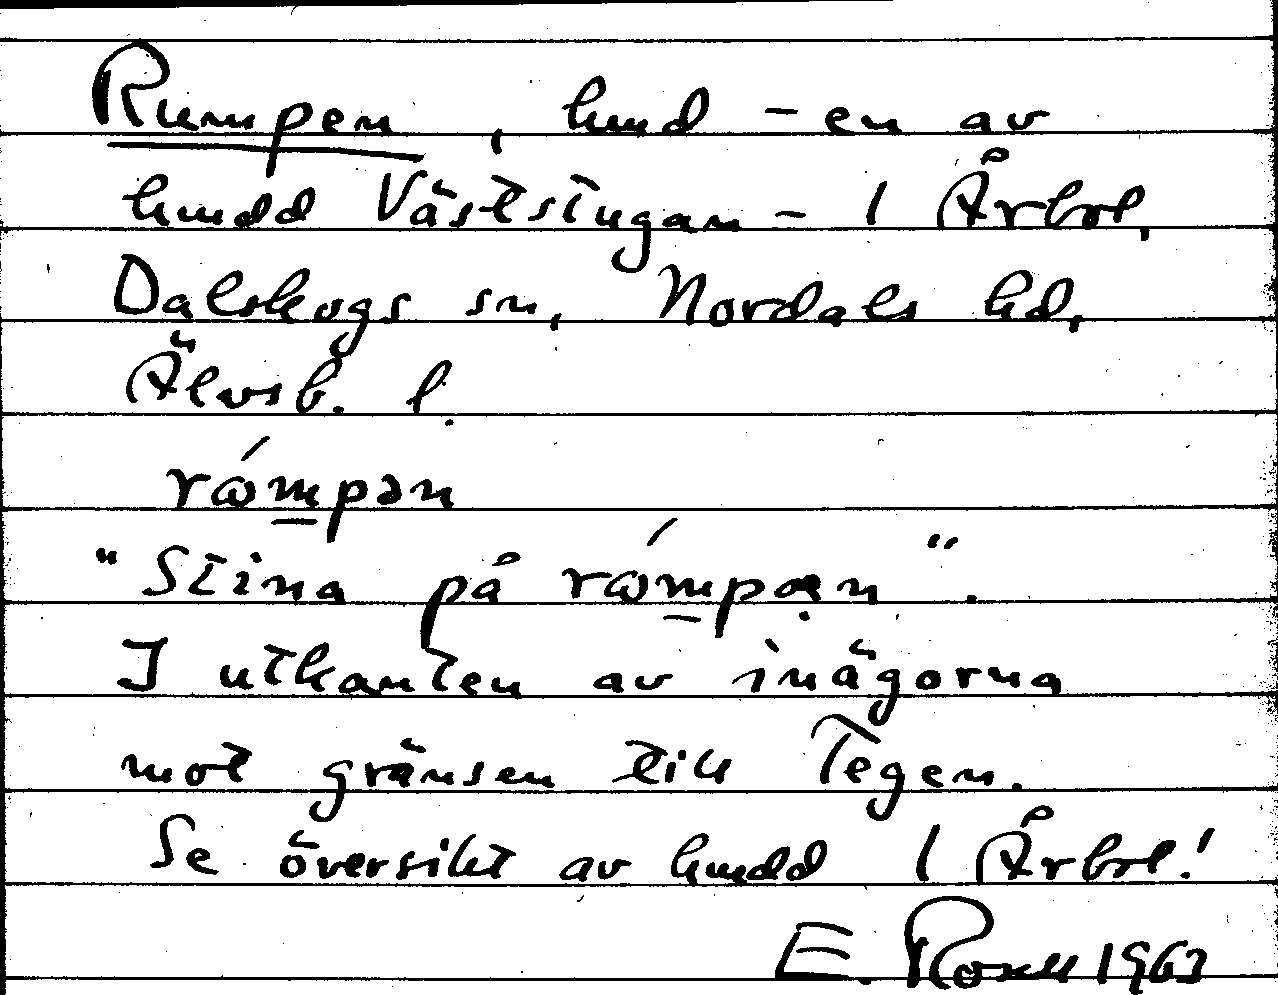 Rumpen, hmd - en av
hmdd Väststugan - 1 Årbol,
Dalskogs sn, Nordals hd,
Älvsb. l.
rómpən
"Stina på rómpæn".
I utkanten av inägorna
mot gränsen till Tegen.
Se översikt av hmdd 1 Årbol!
E. 1963